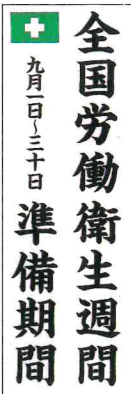 全国労働衛生週間
九月一日~三十日 準備期間